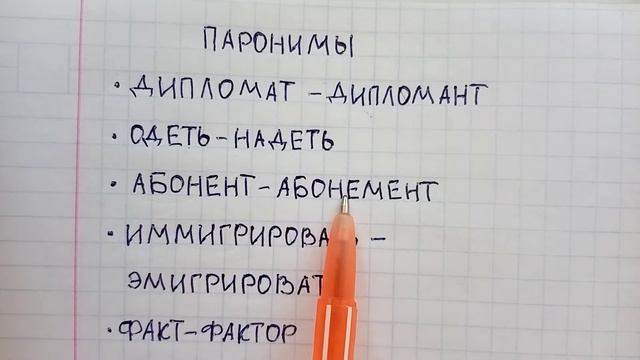 ПАРОНИМЫ
· ДИПЛОМАТ – ДИПЛОМАНТ
· ОДЕТЬ – НАДЕТЬ
· АБОНЕНТ – АБОНЕМЕНТ
· ИММИГРИРОВАТЬ –
ЭМИГРИРОВАТ
· ФАКТ – ФАКТОР